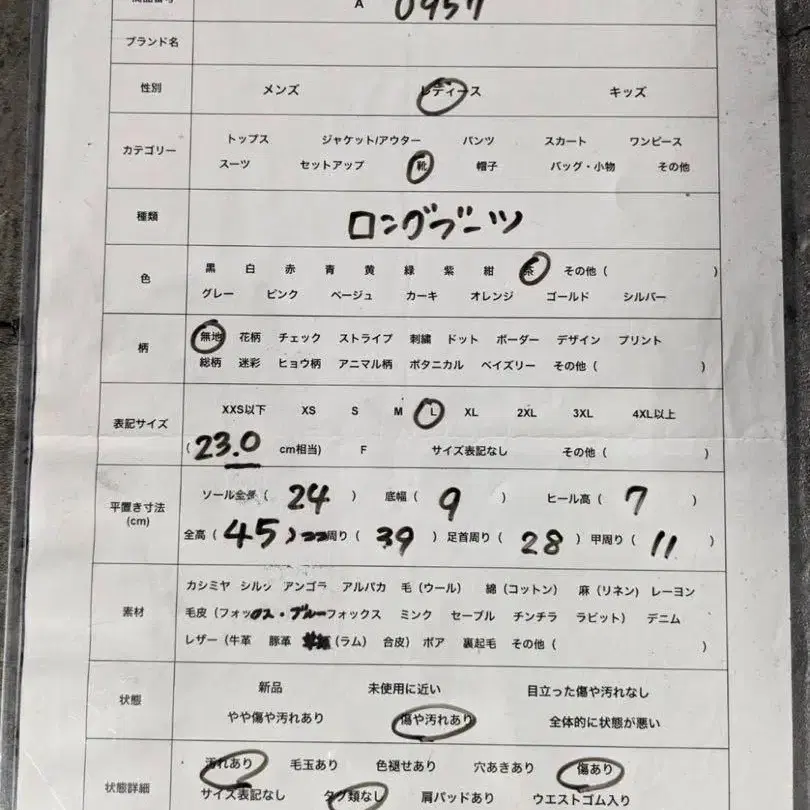 商品番号 A 0957
ブランド名
性別 メンズ レディース キッズ
カテゴリー トップス ジャケット/アウター パンツ スカート ワンピース
スーツ セットアップ 靴 帽子 バッグ・小物 その他
種類 ロングブーツ
色 黒 白 赤 青 黄 緑 紫 紺 茶 その他 ( )
グレー ピンク ベージュ カーキ オレンジ ゴールド シルバー
柄 無地 花柄 チェック ストライプ 刺繍 ドット ボーダー デザイン プリント
総柄 迷彩 ヒョウ柄 アニマル柄 ボタニカル ペイズリー その他 ( )
表記サイズ XXS以下 XS S M L XL 2XL 3XL 4XL以上
( 23.0 cm相当) F サイズ表記なし その他 ( )
平置き寸法 (cm) ソール全長 ( 24 ) 底幅 ( 9 ) ヒール高 ( 7 )
全高 ( 45 ) 周り ( 39 ) 足首周り ( 28 ) 甲周り ( 11 )
素材 カシミヤ シルク アンゴラ アルパカ 毛 (ウール) 綿 (コットン) 麻 (リネン) レーヨン
毛皮 (フォックス・ブルーフォックス ミンク セーブル チンチラ ラビット) デニム
レザー (牛革 豚革 (ラム) 合皮) ボア 裏起毛 その他 ( )
状態 新品 未使用に近い 目立った傷や汚れなし
やや傷や汚れあり 傷や汚れあり 全体的に状態が悪い
状態詳細 汚れあり 毛玉あり 色褪せあり 穴あきあり 傷あり
サイズ表記なし タグ類なし 肩パッドあり ウエストゴム入り